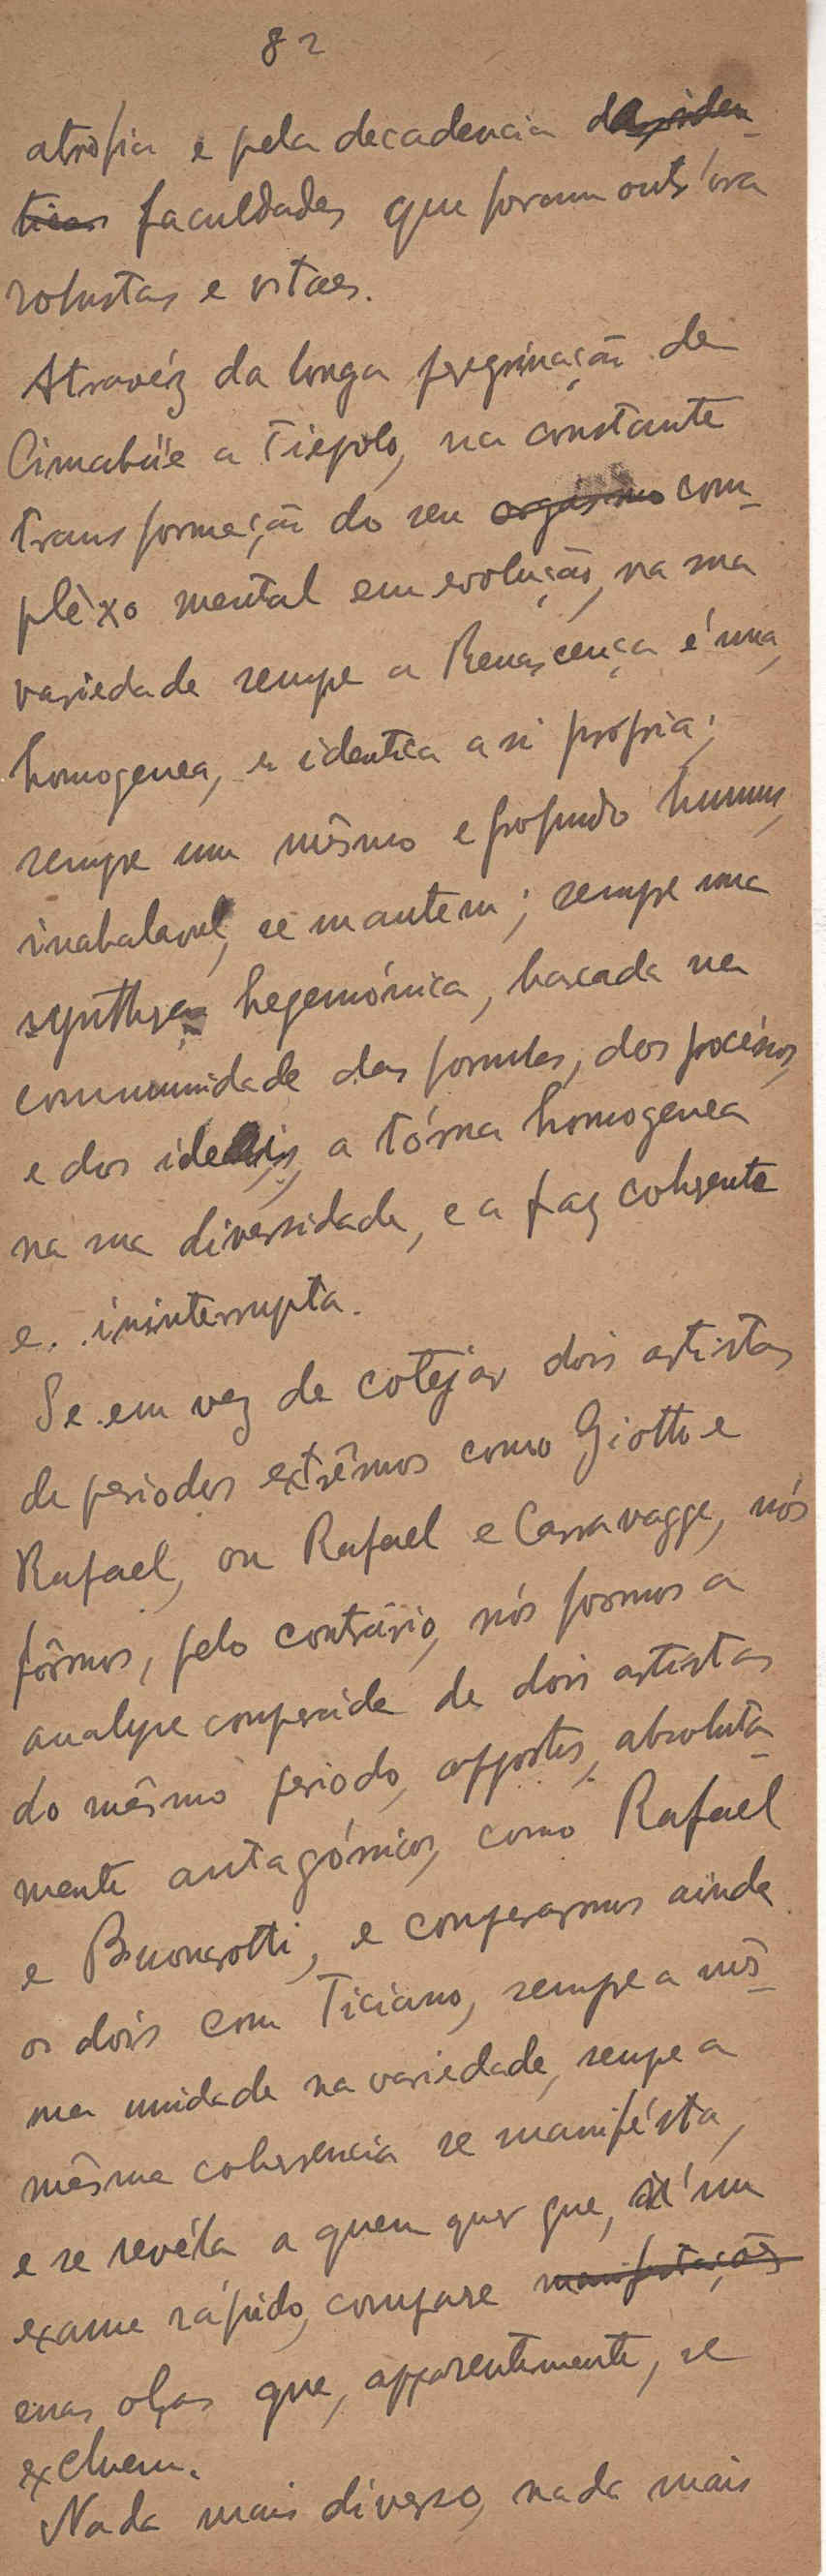 82
atrófia e pela decadencia das iden-
ticas faculdades que foram outr'ora
robustas e vitaes.
Atravéz da longa peregrinação de
Cimabüe a Tiepolo, na constante
transformação do seu orgasmo com-
plèxo mental em evolução, na sua
variedade sempre a Renascença é una,
homogenea, e identica a si própria;
sempre um mêsmo e profundo humus,
inabalavel, se mantem; sempre uma
synthese hegemónica, baseada na
communidade das formulas, dos procéssos,
e dos ideais, a tórna homogenea
na sua diversidade, e a faz coherente
e ininterrupta.
Se em vez de cotejar dois artistas
de periodos extrêmos como Giotto e
Rafael, ou Rafael e Carravagge, nós
fôrmos, pelo contrário, nós formos a
analyse comparada de dois artistas
do mêsmo periodo, oppostos, absoluta-
mente antagónicos, como Rafael
e Buonarotti, e compararmos ainda
os dois com Ticiano, sempre a mês-
ma unidade na variedade, sempre a
mêsma coherencia se manifésta,
e se revéla a quem quer que, n'um
exame rápido, compare manifestações
essas obras que, apparentemente, se
excluem.
Nada mais diverso, nada mais